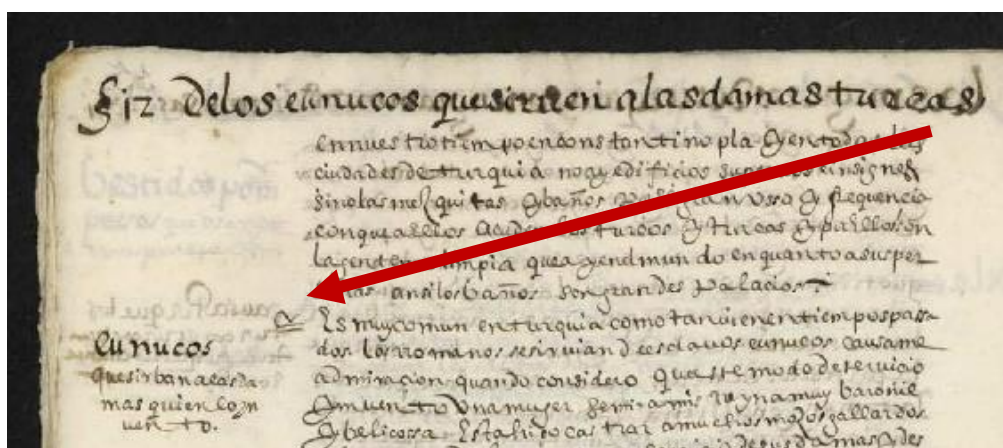 § 12 Delos eunucos quesiruen alasdamas turcas
ennuestrotiempoenconstantinopla Yentodas las
ciudadesdeturquia noay edificios insignes
sinolasmezquitas Ybaños Y frequencia
conqueaellos acuden los turcos Yturcas Yparellosson
lagente limpia queayenelmundo enquantoasusper
ansilosbaños songrandes palacios
Es muycomun enturquia como tanuienentiempospasa
dos losrromanos sesiruian deesclauos eunucos causame
admiraçion quando considero queestemodo deseruicio
ynuento Vnamuger semiramis reynamuy baronil
Ybelicossa Estahiço castrar amuchos moços gallardos
eunucos
quesirbanalasda
mas quien loyn
uento.